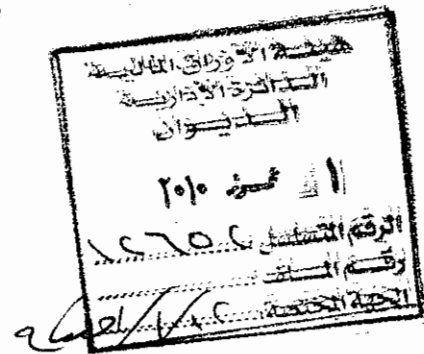 هيئة الاوراق المالية
الدائرة الادارية
الديوان
تموز ٢٠١٠
الرقم المتسلسل ١٢٦٥٢
رقم الملف
الجهة المختصة